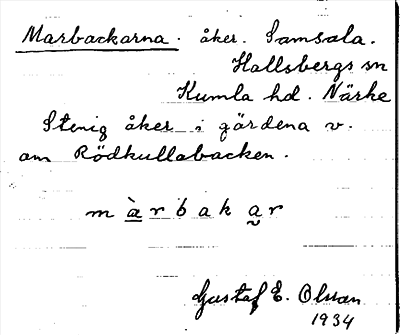 Marbackarna. åker. Samsala.
Hallsbergs sn
Kumla hd. Närke
Stenig åker i gärdena v.
om Rödkullabacken.
m à r b a k a̰ r
Gustaf E. Olsson
1934